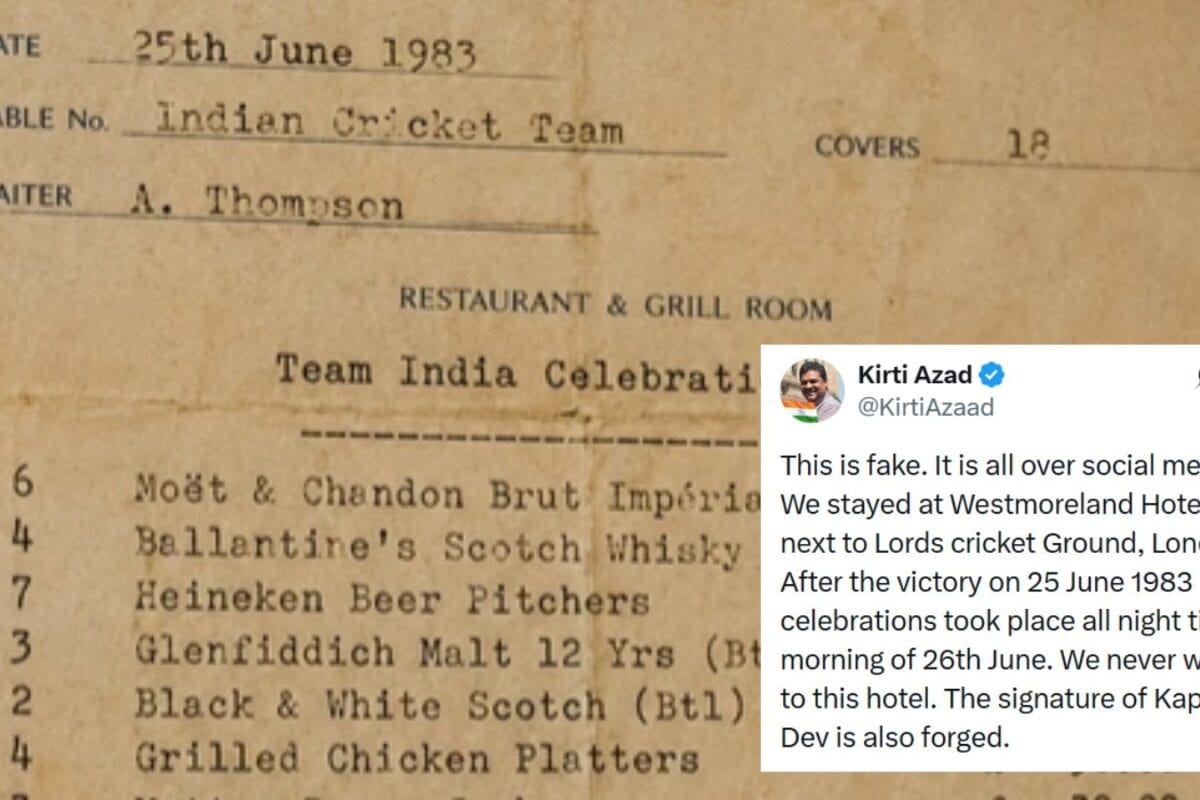 ATE 25th June 1983
ABLE No. Indian Cricket Team COVERS 18
AITER A. Thompson
RESTAURANT & GRILL ROOM
Team India Celebrati
6 Moët & Chandon Brut Impéria
4 Ballantine's Scotch Whisky
7 Heineken Beer Pitchers
3 Glenfiddich Malt 12 Yrs (Bt
2 Black & White Scotch (Btl)
4 Grilled Chicken Platters
Kirti Azad
@KirtiAzaad
This is fake. It is all over social me
We stayed at Westmoreland Hote
next to Lords cricket Ground, Lon
After the victory on 25 June 1983
celebrations took place all night ti
morning of 26th June. We never w
to this hotel. The signature of Kap
Dev is also forged.